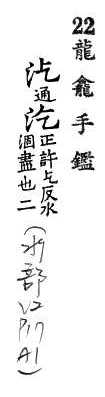 22 龍龕手鑑
通汽正許乞反水
涸盡也二
(水部 V2 P17 A1)